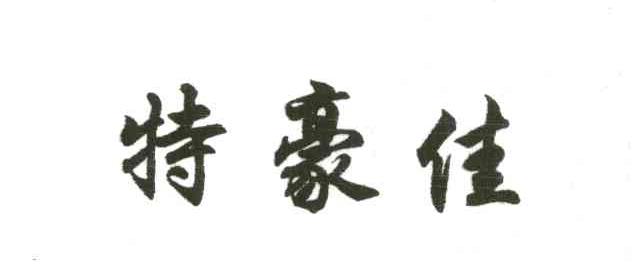 特豪佳